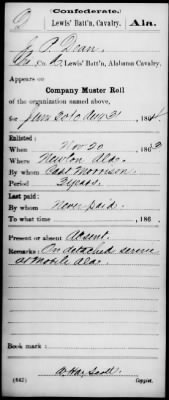 (Confederate.)
D Lewis' Batt'n, Cavalry. Ala.
P. Dean
Co. Lewis' Batt'n, Alabama Cavalry.
Appears on
Company Muster Roll
of the organization named above,
for June 30 to Aug 31, 1864.
Enlisted:
When Nov 20, 1863
Where Newton Ala.
By whom Capt Morrison
Period 3 years
Last paid:
By whom Never paid.
To what time , 186 .
Present or absent Absent.
Remarks: On detached service
at Mobile Ala.
Book mark:
Scott
(642) Copyist.